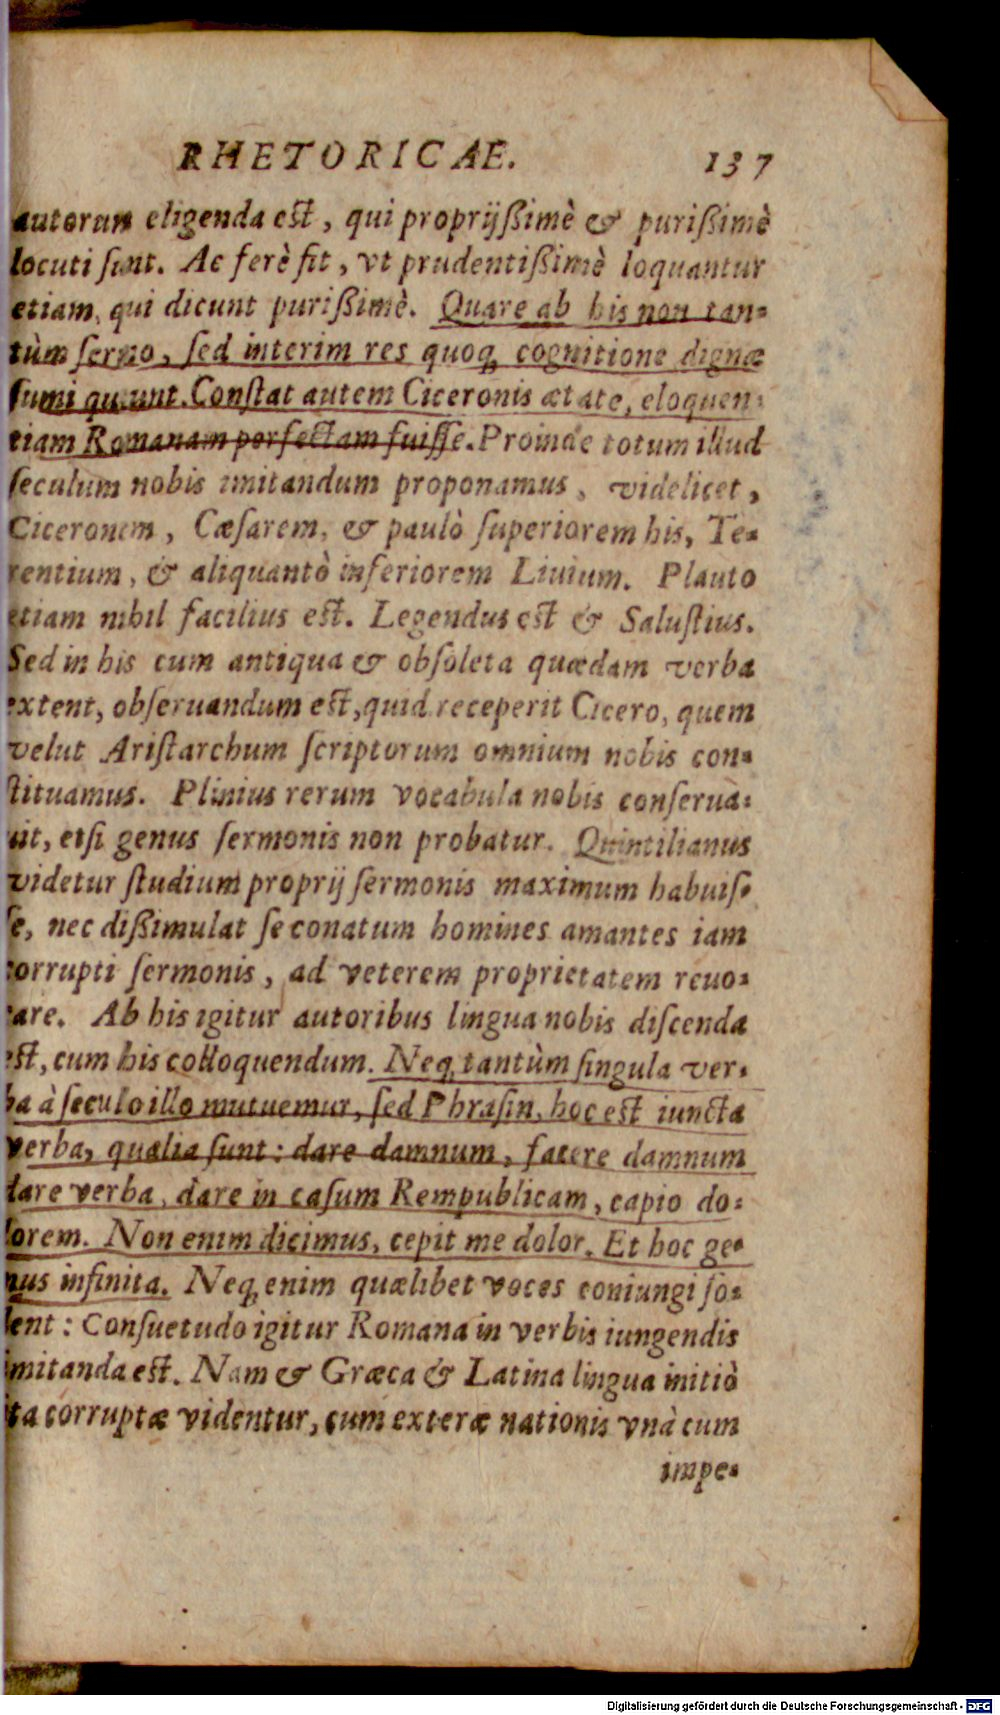 RHETORICAE. 137
autorum eligenda est, qui proprijßimè & purißimè
locuti sunt. Ac ferè fit, vt prudentißimè loquantur
etiam, qui dicunt purißimè. Quare ab his non tan-
tùm sermo, sed interim res quoq; cognitione dignæ
sumi queunt. Constat autem Ciceronis ætate, eloquen-
tiam Romanam perfectam fuisse. Proinde totum illud
seculum nobis imitandum proponamus, videlicet,
Ciceronem, Cæsarem, & paulò superiorem his, Te-
rentium, & aliquantò inferiorem Liuium. Plauto
etiam nihil facilius est. Legendus est & Salustius.
Sed in his cum antiqua & obsoleta quædam verba
extent, obseruandum est, quid receperit Cicero, quem
velut Aristarchum scriptorum omnium nobis con-
stituamus. Plinius rerum vocabula nobis conserua-
uit, etsi genus sermonis non probatur. Quintilianus
videtur studium proprij sermonis maximum habuis-
se, nec dißimulat se conatum homines amantes iam
corrupti sermonis, ad veterem proprietatem reuo-
care. Ab his igitur autoribus lingua nobis discenda
est, cum his colloquendum. Neq; tantùm singula ver-
ba à seculo illo mutuemur, sed Phrasin, hoc est iuncta
verba, qualia sunt: dare damnum, facere damnum
dare verba, dare in casum Rempublicam, capio do-
lorem. Non enim dicimus, cepit me dolor. Et hoc ge-
nus infinita. Neq; enim quælibet voces coniungi so-
lent: Consuetudo igitur Romana in verbis iungendis
imitanda est. Nam & Græca & Latina lingua initiò
ita corruptæ videntur, cum exteræ nationis vnà cum
impe-
Digitalisierung gefördert durch die Deutsche Forschungsgemeinschaft - DFG